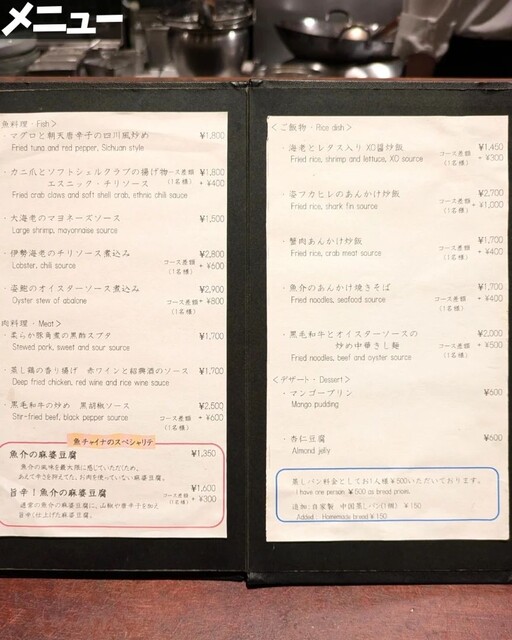 メニュー
魚料理・Fish>
・マグロと朝天唐辛子の四川風炒め ¥1,800
Fried tuna and red pepper, Sichuan style
・カニ爪とソフトシェルクラブの揚げ物 ¥1,800
エスニック・チリソース コース差額(1名様) + ¥400
Fried crab claws and soft shell crab, ethnic chili sauce
・大海老のマヨネーズソース ¥1,500
Large shrimp, mayonnaise source
・伊勢海老のチリソース煮込み ¥2,800
Lobster, chili source コース差額(1名様) + ¥600
・姿鮑のオイスターソース煮込み ¥2,900
Oyster stew of abalone コース差額(1名様) + ¥800
肉料理・Meat>
・柔らか豚角煮の黒酢スブタ ¥1,700
Stewed pork, sweet and sour source
・蒸し鶏の香り揚げ 赤ワインと紹興酒のソース ¥1,700
Deep fried chicken, red wine and rice wine sauce
・黒毛和牛の炒め 黒胡椒ソース ¥2,500
Stir-fried beef, black pepper source コース差額(1名様) + ¥600
魚チャイナのスペシャリテ
魚介の麻婆豆腐 ¥1,350
魚介の風味を最大限に感じていただくため、
あえて辛さを抑えてた、お肉を使っていない麻婆豆腐。
旨辛！魚介の麻婆豆腐 ¥1,600
コース差額(1名様) + ¥300
通常の魚介の麻婆豆腐に、山椒や唐辛子を加え
旨辛く仕上げた麻婆豆腐。
<ご飯物・Rice dish>
・海老とレタス入りXO醤炒飯 ¥1,450
Fried rice, shrimp and lettuce, XO source コース差額(1名様) + ¥300
・姿フカヒレのあんかけ炒飯 ¥2,700
Fried rice, shark fin source コース差額(1名様) + ¥1,000
・蟹肉あんかけ炒飯 ¥1,700
Fried rice, crab meat source コース差額(1名様) + ¥400
・魚介のあんかけ焼きそば ¥1,700
Fried noodles, seafood source コース差額(1名様) + ¥400
・黒毛和牛とオイスターソースの ¥2,000
炒め中華さし麺 コース差額(1名様) + ¥500
Fried noodles, beef and oyster source
<デザート・Dessert>
・マンゴープリン ¥600
Mango pudding
・杏仁豆腐 ¥600
Almond jelly
蒸しパン料金としてお1人様¥500いただいております。
I have one person, ¥500 as bread priors.
追加:自家製 中国蒸しパン(1個) ¥150
Added: Homemade bread ¥150